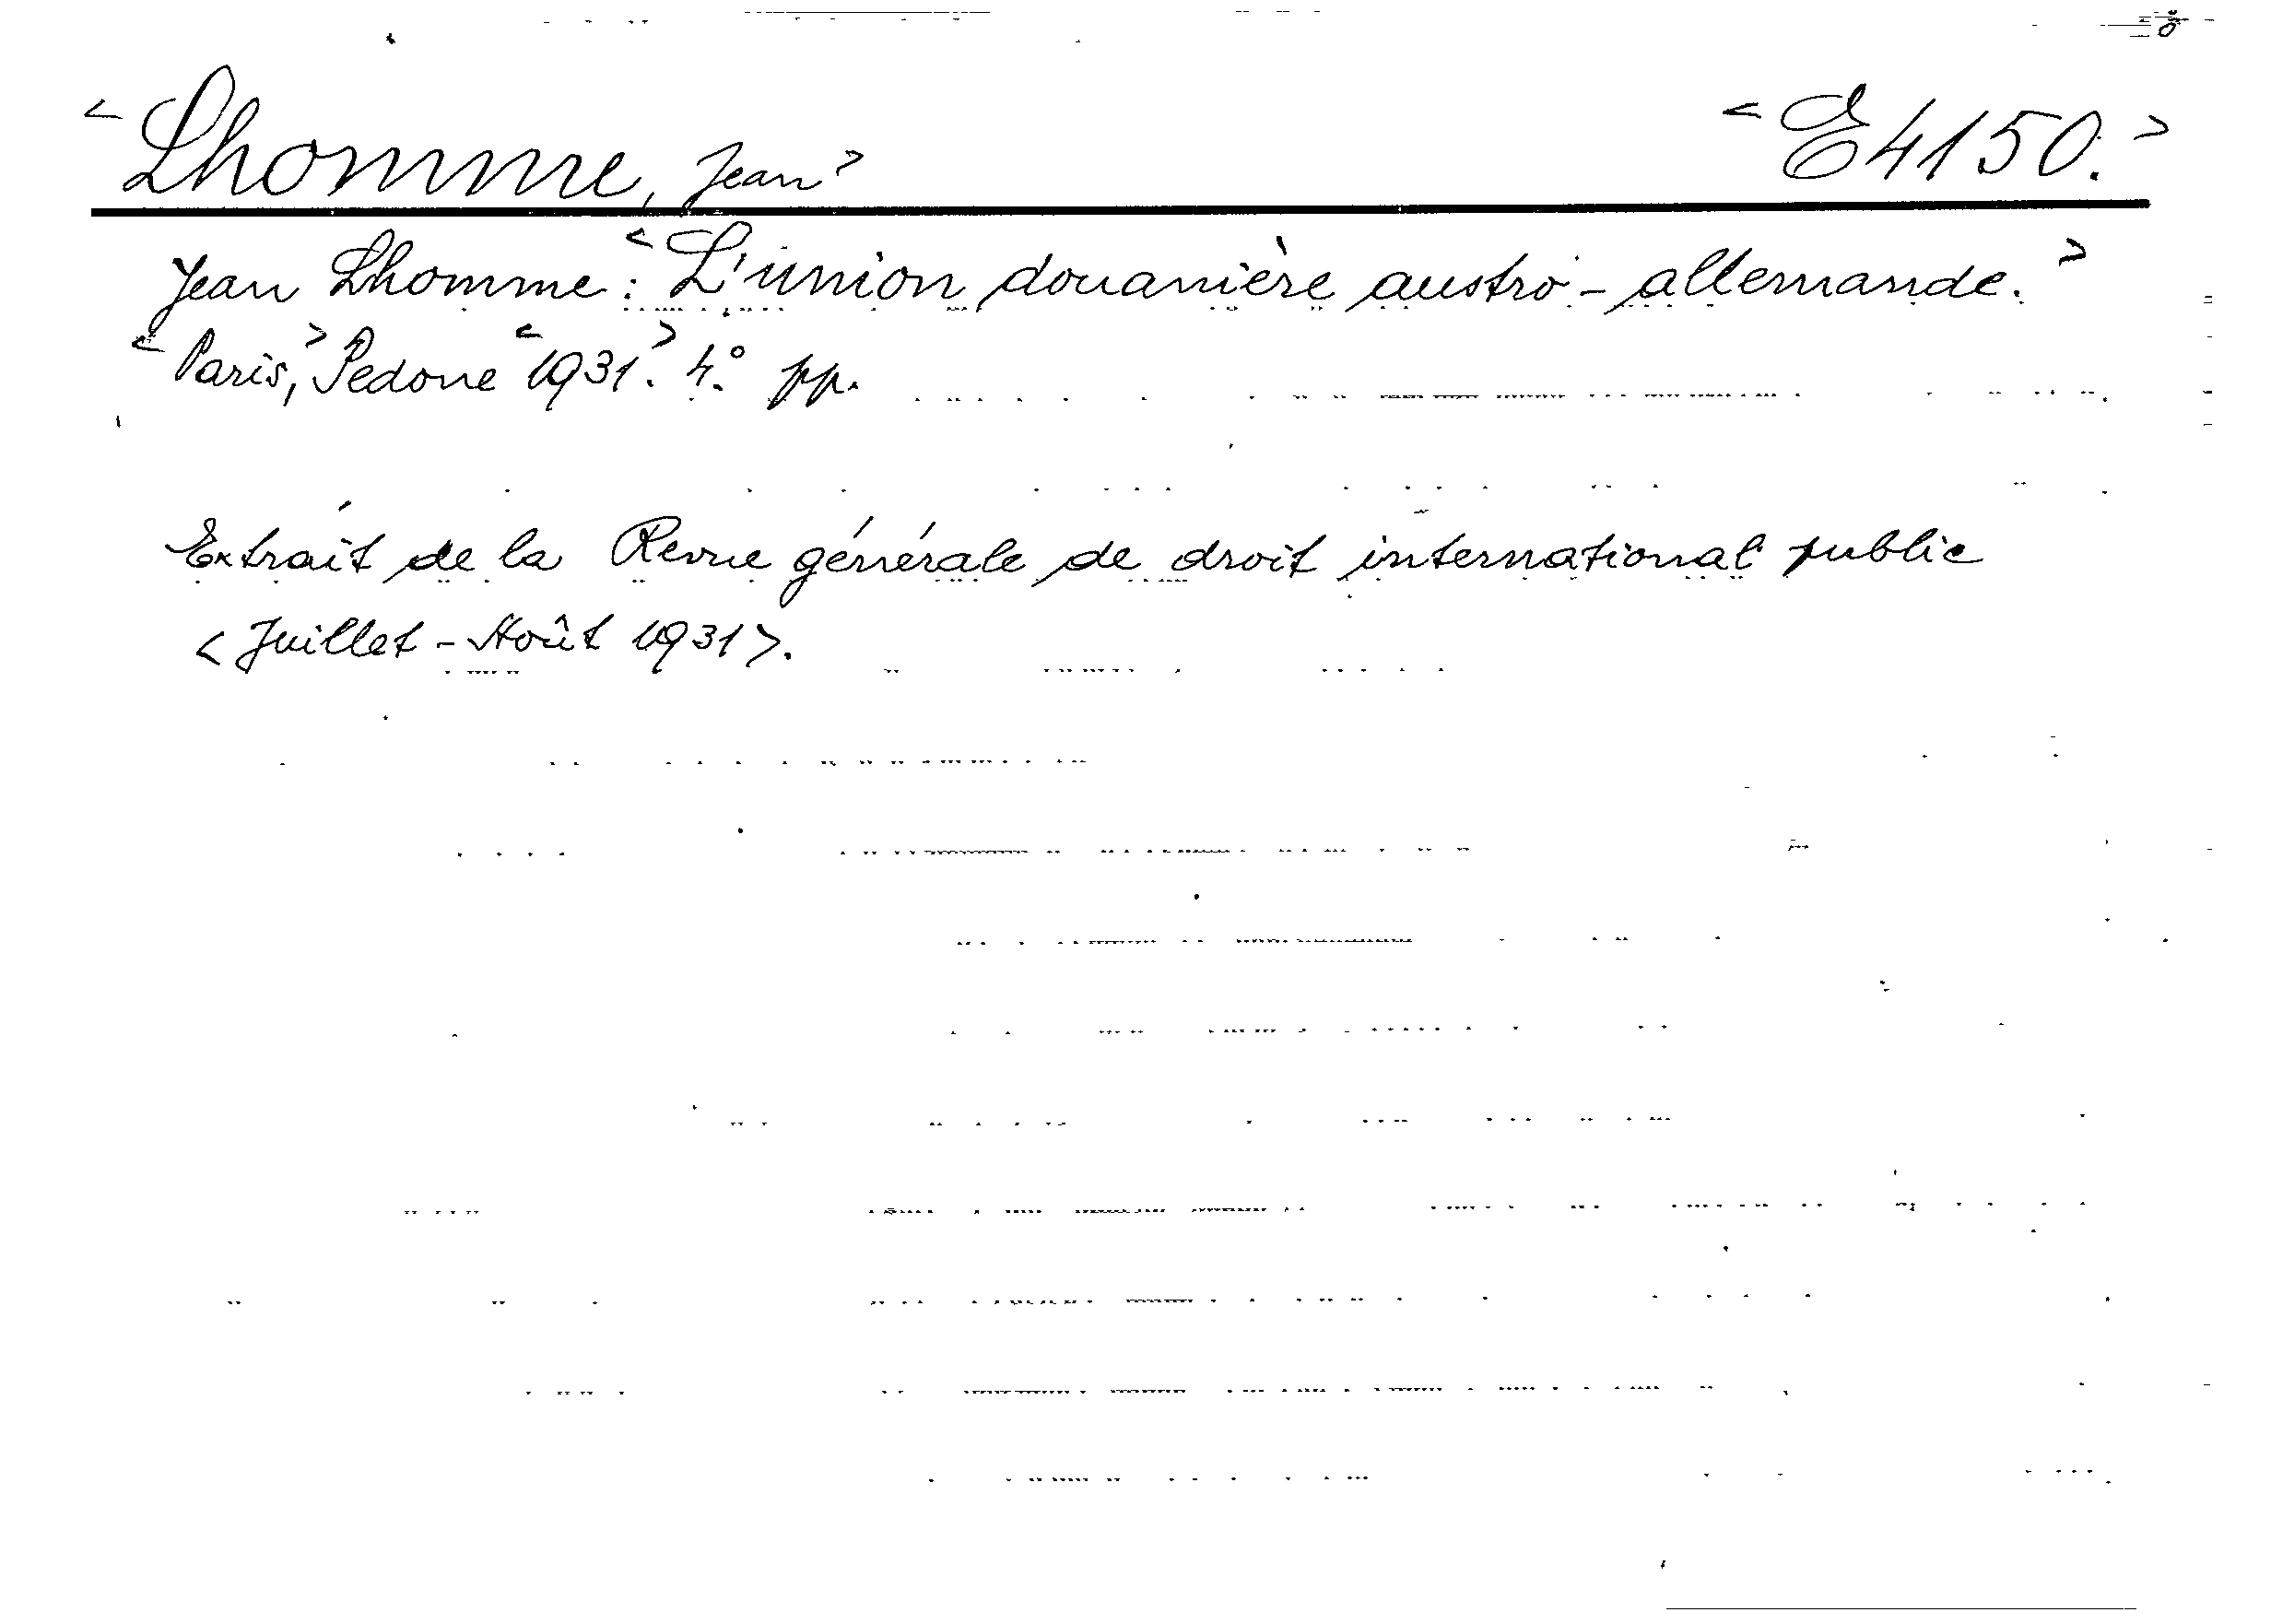 <Lhomme, Jean> <E4150.>
Jean Lhomme: <L'union douanière austro-allemande.>
<Paris,> Pedone <1931.> 4.° pp.
Extrait de la Revue générale de droit international public
<Juillet-Août 1931>.